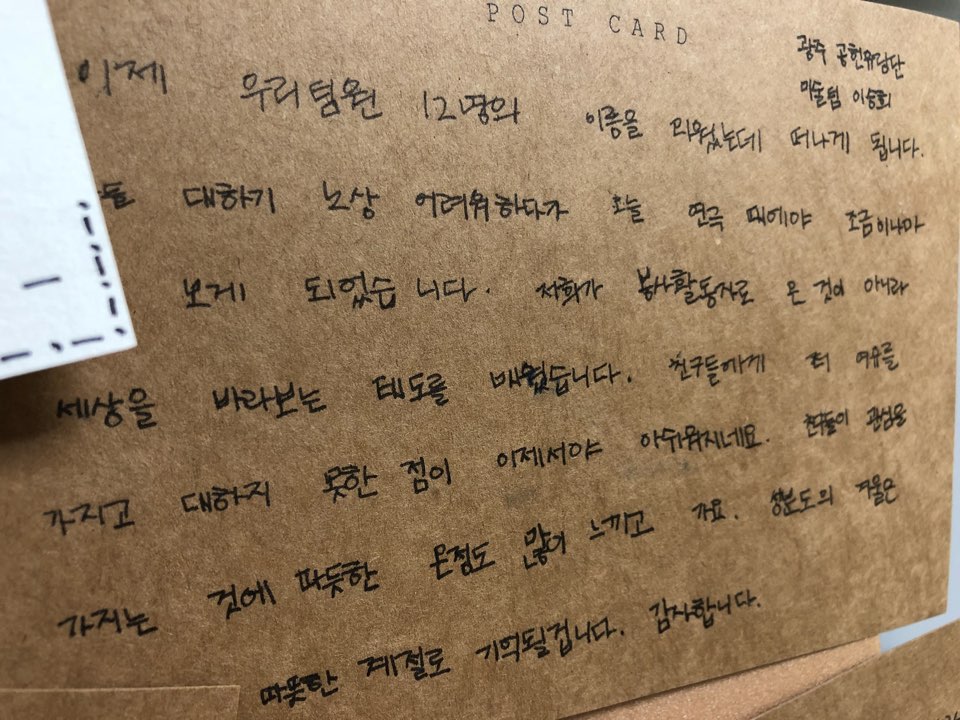 POST CARD
광주 공헌유랑단
미술팀 이승희
이제 우리팀원 12명의 이름을 외웠는데 떠나게 됩니다.
대하기 노상 어려워하다가 오늘 연극 때에야 조금이나마
보게 되었습니다. 저희가 봉사활동자로 온 것이 아니라
세상을 바라보는 태도를 배웠습니다. 친구들에게 더 여유를
가지고 대하지 못한 점이 이제서야 아쉬워지네요. 친구들이 관심을
가지는 것에 따듯한 온점도 많이 느끼고 가요. 성분도의 겨울은
따뜻한 계절로 기억될겁니다. 감사합니다.